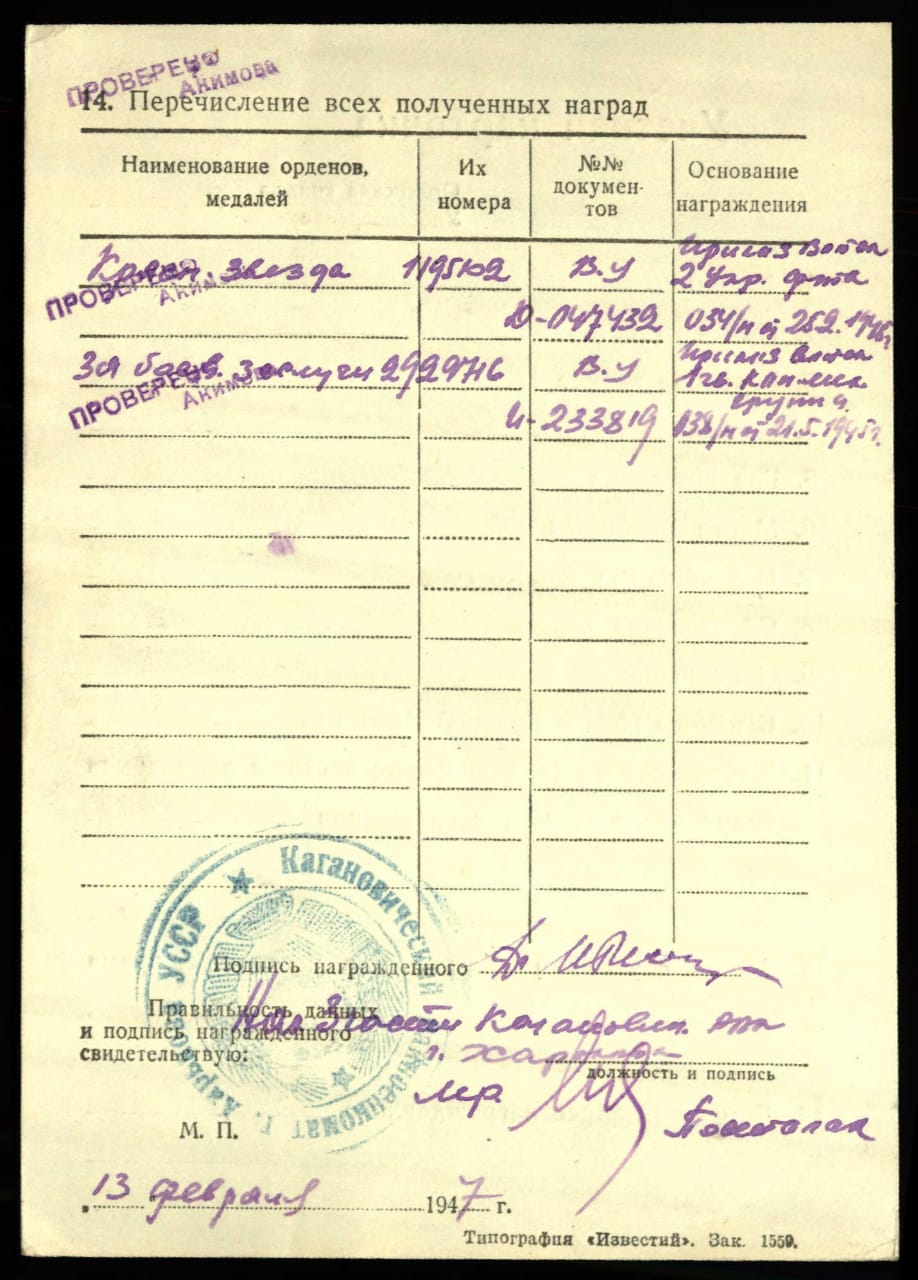 ПРОВЕРЕНО
Акимова
14. Перечисление всех полученных наград
Наименование орденов, медалей
Их номера
№№ документов
Основание награждения
Красн. Звезда 1195102 В.У Приказ Войск
2 Укр. фнта
Д-047439 034/н от 25.2.1946г
ПРОВЕРЕНО
Акимова
За боев. заслуги 2929746 В.У Приказ Войск
1гв. Кав. мех.
группа
И-233819 038/н от 21.5.1945г.
ПРОВЕРЕНО
Акимова
Подпись награжденного
Правильность данных
и подпись награжденного
свидетельствую:
Каганович. РВК
г. Харькова
должность и подпись
М. П.
Кагановический Райвоенкомат г. Харьков УССР
13 февраля 1947 г.
Типография «Известий». Зак. 1559.